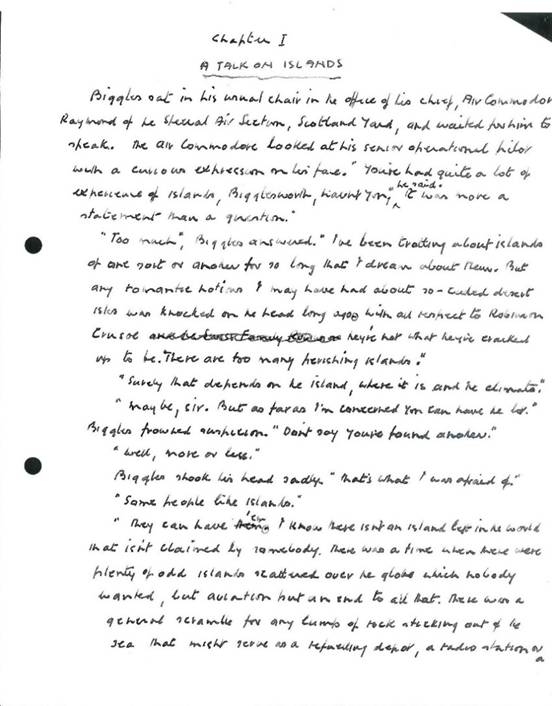 Chapter I
A TALK ON ISLANDS
Biggles sat in his usual chair in he office of his chief, Air Commodore
Raymond of he Special Air Section, Scotland Yard, and waited for him to
speak. The air Commodore looked at his senior operational pilot
with a curious expression on his face. "You've had quite a lot of
experience of islands, Bigglesworth, havn't you," he said. It was more a
statement than a question."
"Too much", Biggles answered. "I've been trotting about islands
of one sort or another for so long that I dream about them. But
any romantic notions I may have had about so-called desert
isles was knocked on he head long ago with all respect to Robinson
Crusoe and he Swiss Family Robinson they're not what they're cracked
up to be. There are too many perishing islands."
"Surely that depends on he island, where it is and he climate."
"Maybe, sir. But as far as I'm concerned you can have he lot."
Biggles frowned suspicion. "Don't say you've found another."
"Well, more or less."
Biggles shook his head sadly. "That's what I was afraid of."
"Some people like islands."
"They can have 'em I know there isn't an island left in he world
that isn't claimed by somebody. There was a time when there were
plenty of odd islands scattered over he globe which nobody
wanted, but aviation put an end to all that. There was a
general scramble for any lump of rock sticking out of he
sea that might serve as a refuelling depot, a radio station or
a